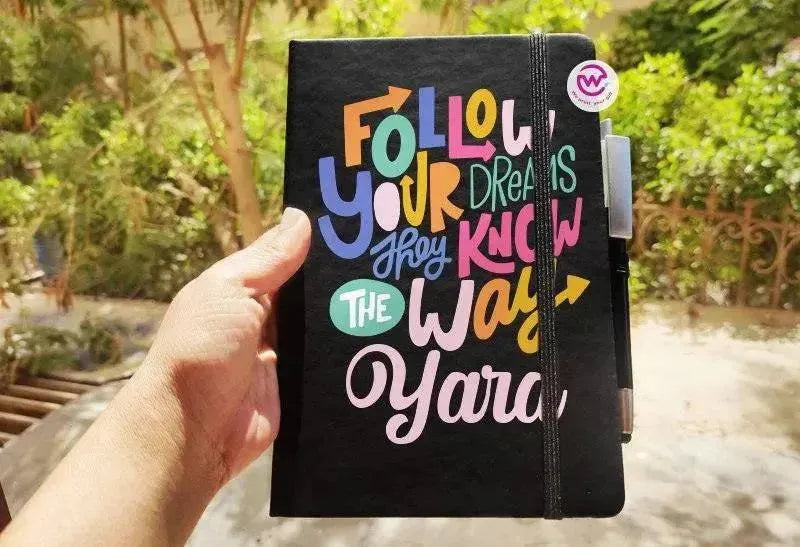 FOLLOW
YOUR DREAMS
They KNOW
THE Way
Yara
We print your gift